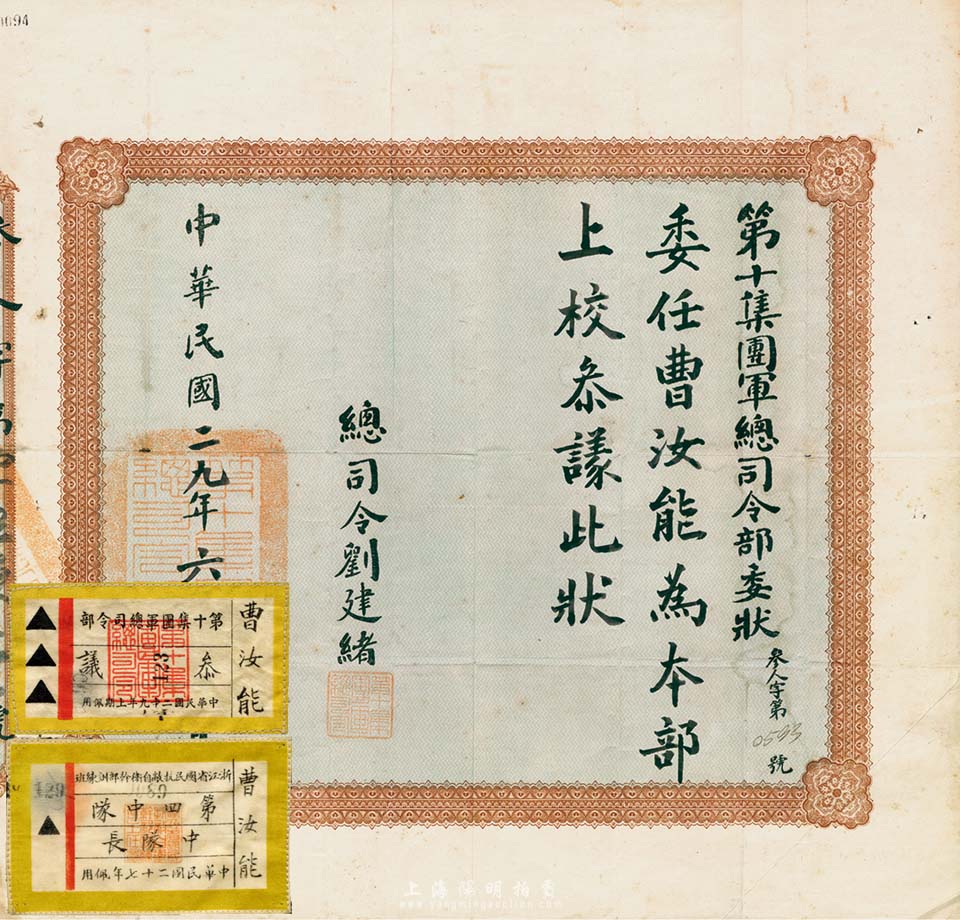 第十集團軍總司令部委狀
叅人字第0593號
委任曹汝能為本部
上校叅議此狀
總司令劉建緒
中華民國二九年六
曹汝能
第十集團軍總司令部
叅議
123
中華民國二十九年上期佩用
曹汝能
浙江省國民抗敵自衛幹部訓練班
89
第四中隊
中隊長
中華民國二十七年佩用
129
上海陽明拍賣
www.yangmingauction.com